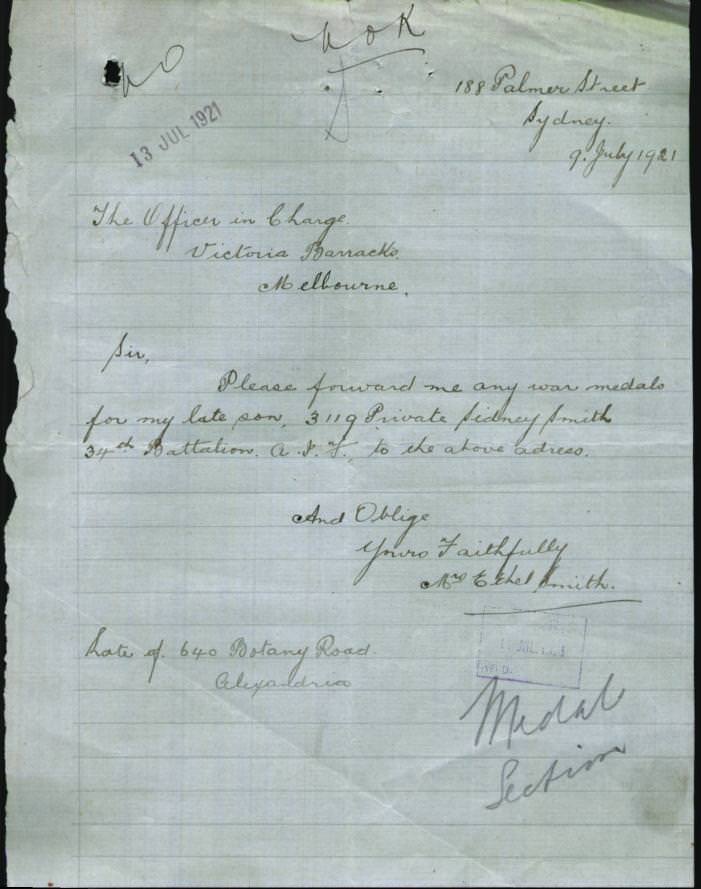 NOK
13 JUL 1921
188 Palmer Street
Sydney.
9. July 1921
The Officer in Charge.
Victoria Barracks.
Melbourne.
Sir,
Please forward me any war medals
for my late son, 3119 Private Sidney Smith
34th Battalion. A.I.F., to the above adress.
And Oblige
Yours Faithfully
Mrs Ethel Smith.
Late of. 640 Botany Road.
Alexandria
Medal
Section